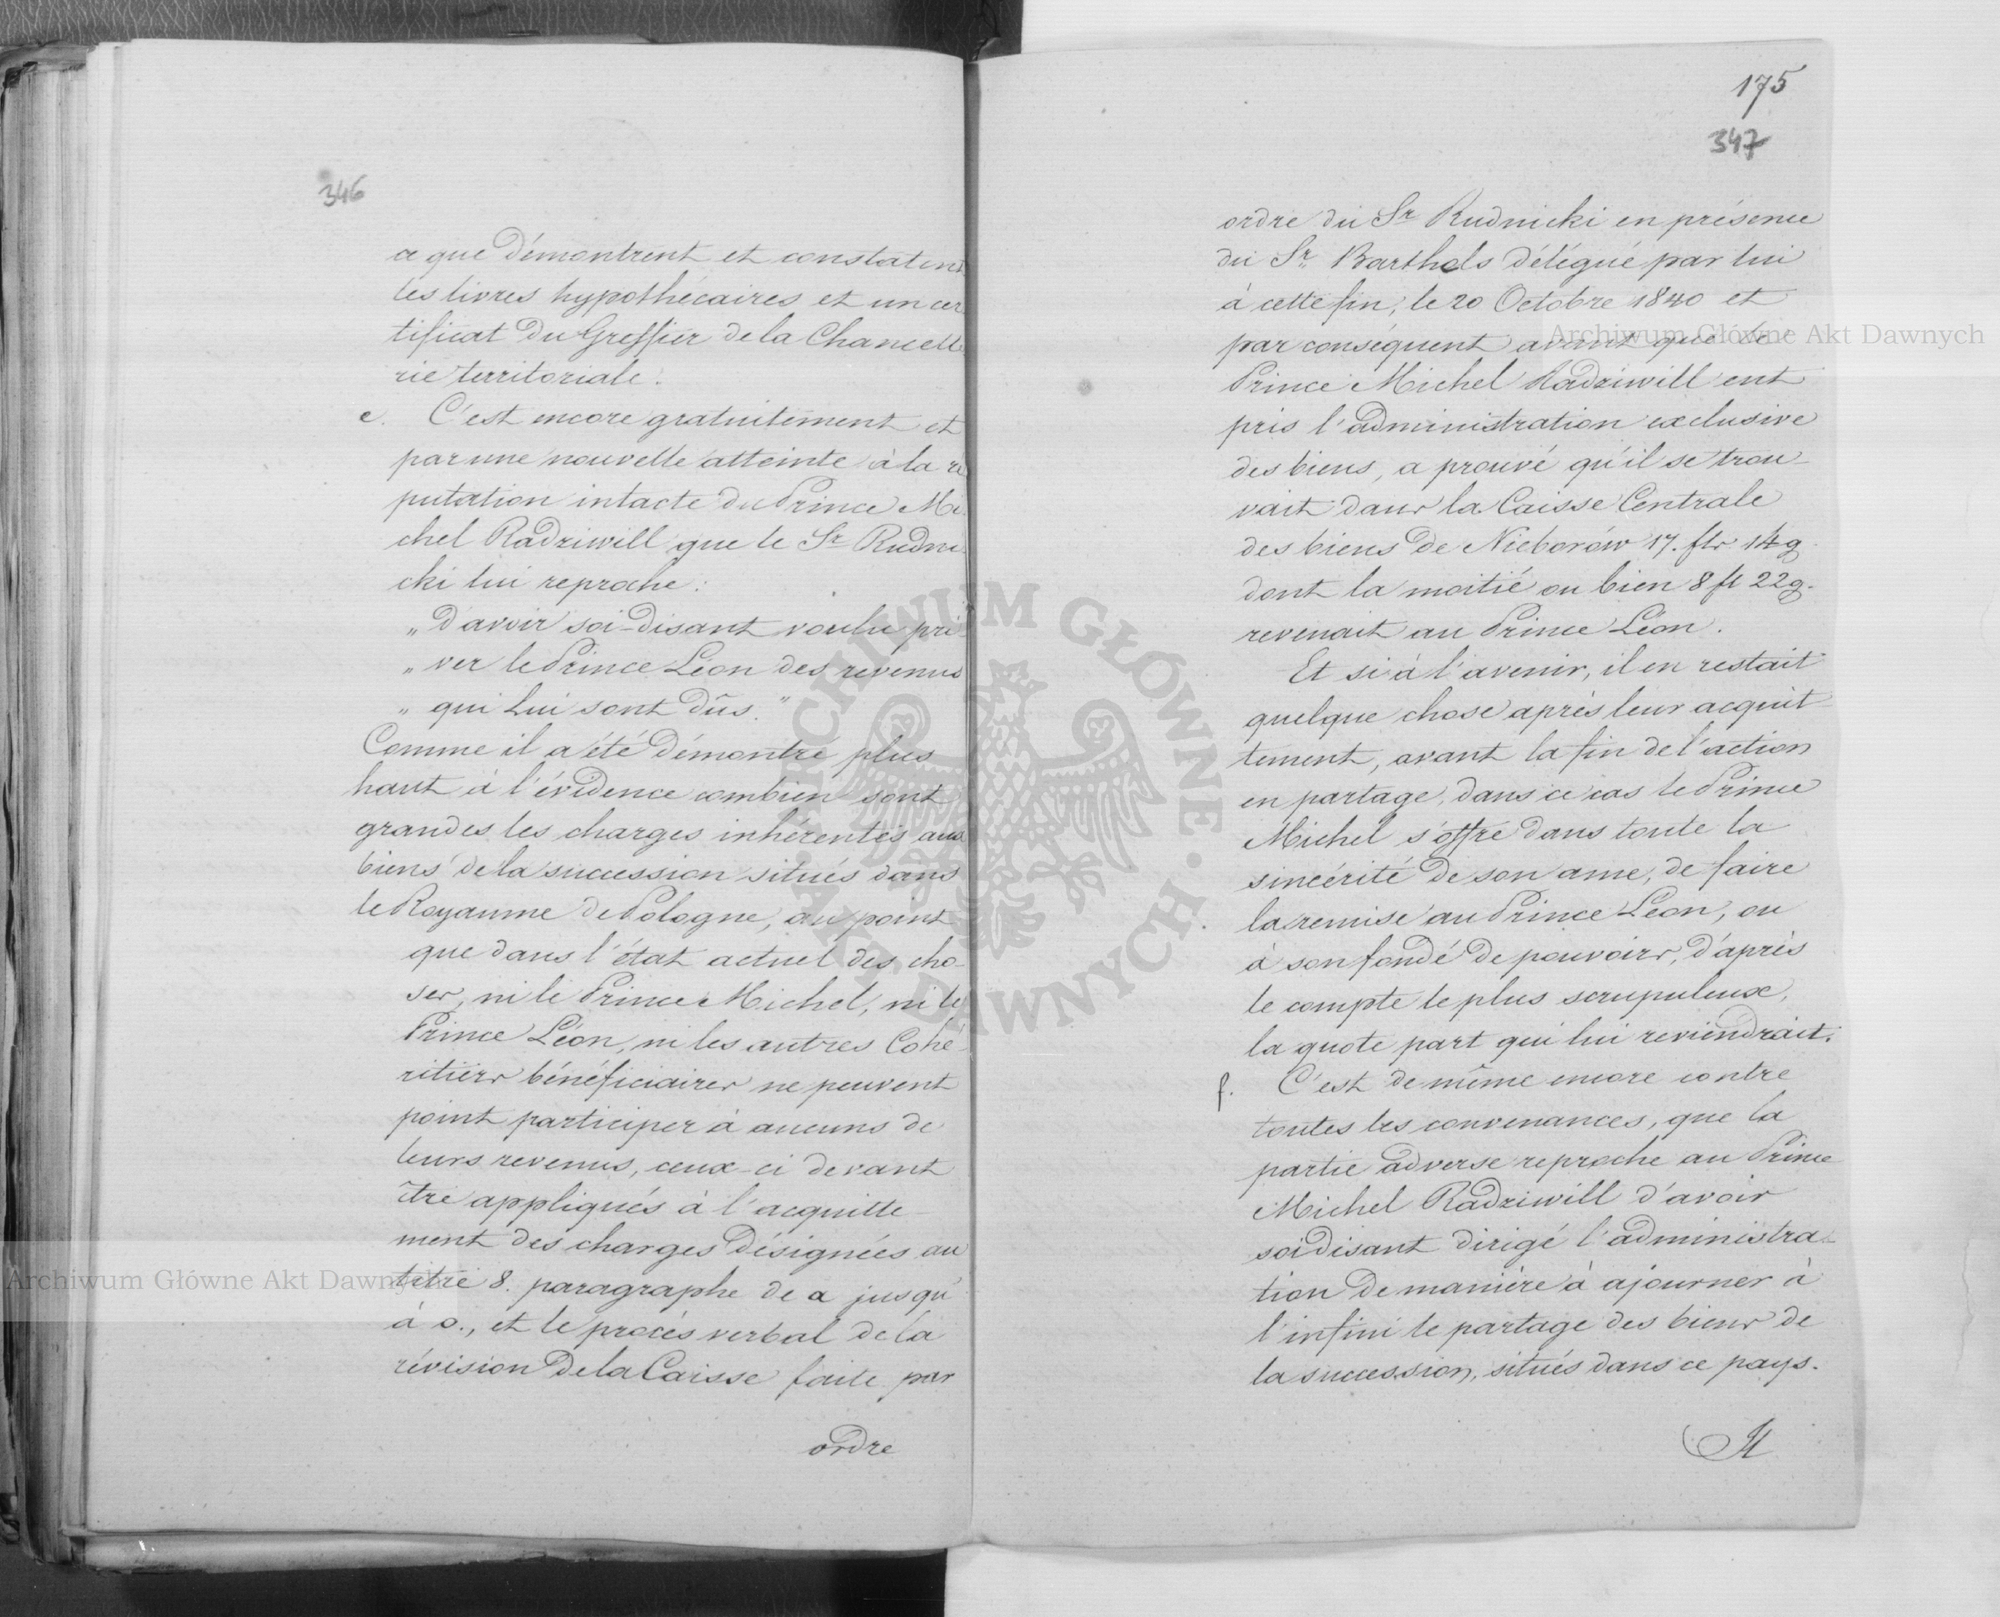 346
ce que démontrent et constatent
les livres hypothécaires et un cer
tificat du Greffier de la Chancelle
rie territoriale.
e. C'est encore gratuitement et
par une nouvelle atteinte à la ré
putation intacte du Prince Mi
chel Radziwill que le Sr Rudni
cki lui reproche:
„ d'avoir soi-disant voulu pri
„ ver le Prince Léon des revenus
„ qui Lui sont dûs."
Comme il a été démontré plus
haut à l'évidence combien sont
grandes les charges inhérentes aux
biens de la succession situés dans
le Royaume de Pologne, au point
que dans l'état actuel des cho-
ses, ni le Prince Michel, ni le
Prince Léon, ni les autres Cohé-
ritiers bénéficiaires ne peuvent
point participer à aucuns de
leurs revenus, ceux-ci devant
être appliqués à l'acquitte-
ment des charges désignées au
titre 8. paragraphe de a jusqu'
à o., et le procès verbal de la
révision de la Caisse faite par
ordre
175
347
ordre du Sr Rudnicki en présence
du Sr. Barthels délégué par lui
à cette fin, le 20 Octobre 1840 et
par conséquent avant que le
Prince Michel Radziwill eut
pris l'administration exclusive
des biens, a prouvé qu'il se trou-
vait dans la Caisse Centrale
des biens de Nieborów 17. flr 14 g.
dont la moitié ou bien 8 fl 22 g.
revenait au Prince Léon.
Et si à l'avenir, il en restait
quelque chose après leur acquit-
tement, avant la fin de l'action
en partage, dans ce cas le Prince
Michel s'offre dans toute la
sincérité de son ame, de faire
la remise au Prince Léon, ou
à son fondé de pouvoirs, d'après
le compte le plus scrupuleux,
la quote part qui lui reviendrait.
f. C'est de même encore contre
toutes les convenances, que la
partie adverse reproche au Prince
Michel Radziwill d'avoir
soidisant dirigé l'administra-
tion de manière à ajourner à
l'infini le partage des biens de
la succession, situés dans ce pays.
Il
Archiwum Główne Akt Dawnych
Archiwum Główne Akt Dawnych
ARCHIWUM GŁÓWNE AKT DAWNYCH